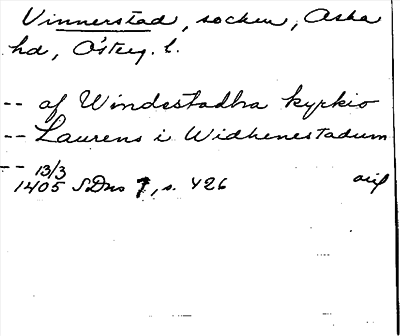 Vinnerstad, socken, Aska
hd, Österg. l.
-- af Windestadha kyrkio
-- Laurens i Widhenestadum
-- 13/3
1405 SDns 1, s. 426 orig